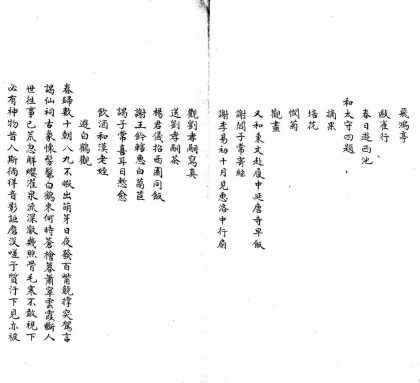 飛鴻亭
啟雀行
春日遊西池
和太守四題
摘果
培花
憫菊
觀畫
又和東文赴度中延唐寺早飯
謝閻子常寄經
謝李易初十月見惠洛中行扇
觀劉孝嗣寫真
送劉孝嗣茶
楊君儀招西園同飯
謝王鈴轄惠白菊苣
謁子常喜耳目憨愈
飲酒和漢老姪
遊白鶴觀
春歸數十朝八九不暇出萌芽日夜發百嘴競撐突駕言
謁仙祠古象悚髣髴白鶴來何時蒼檜暮蕭窣雲霞斷人
世往事已荒忽解纓濯泉流深潄幾照骨毛寒不敢視下
必有神物昔人斯倘徉音影詎虞沒嗟予質汙下見亦被